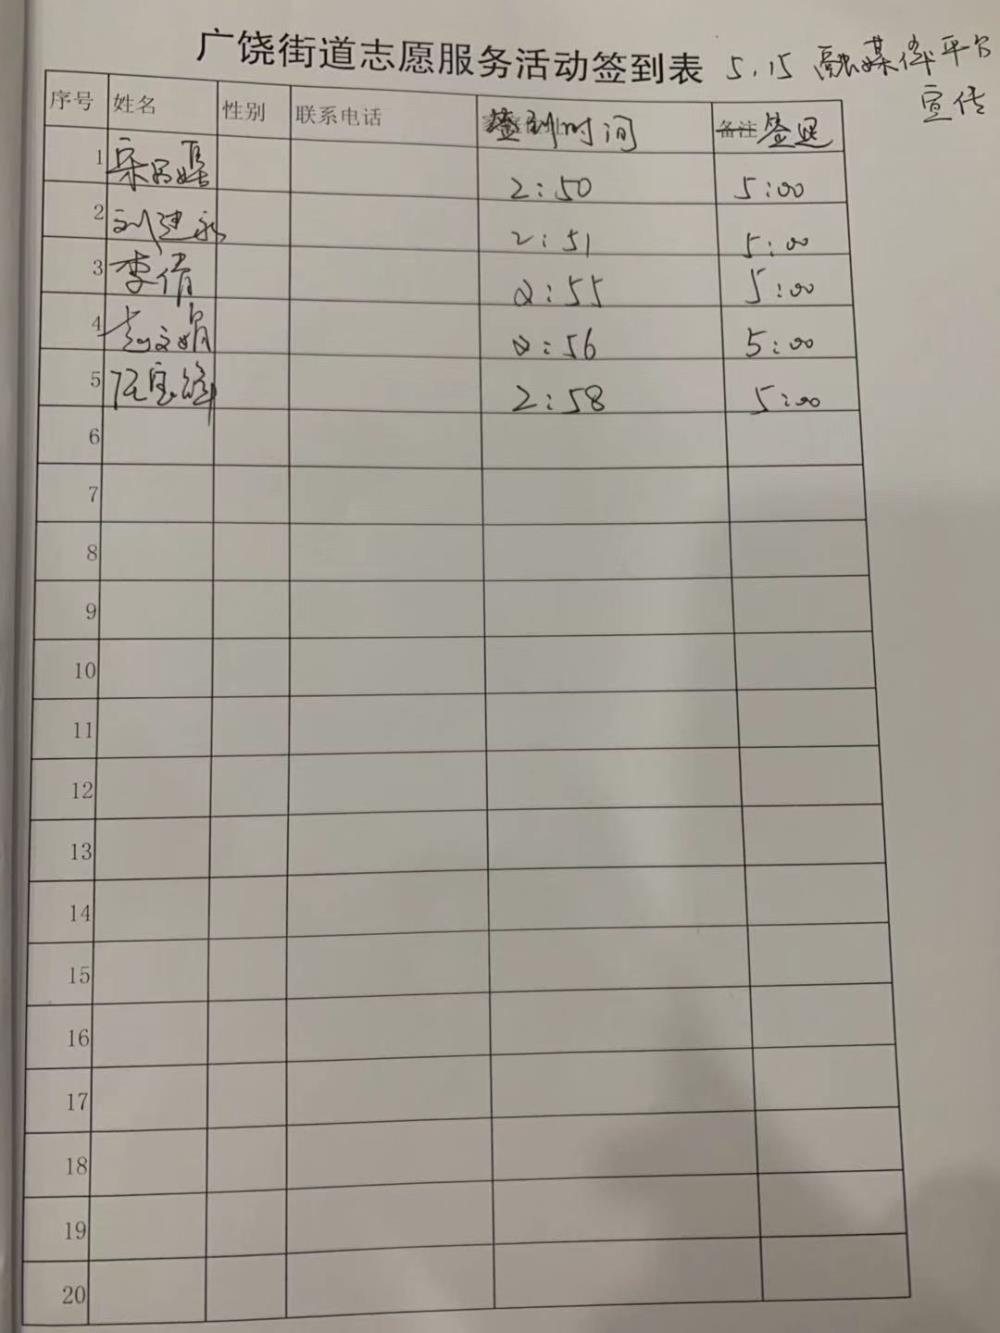 广饶街道志愿服务活动签到表 5.15 融媒体平台
宣传
序号 姓名 性别 联系电话 签到时间 备注 签退
1 2:50 5:00
2 刘建 2:51 5:00
3 李倩 2:55 5:00
4 赵文娟 2:56 5:00
5 2:58 5:00
6
7
8
9
10
11
12
13
14
15
16
17
18
19
20